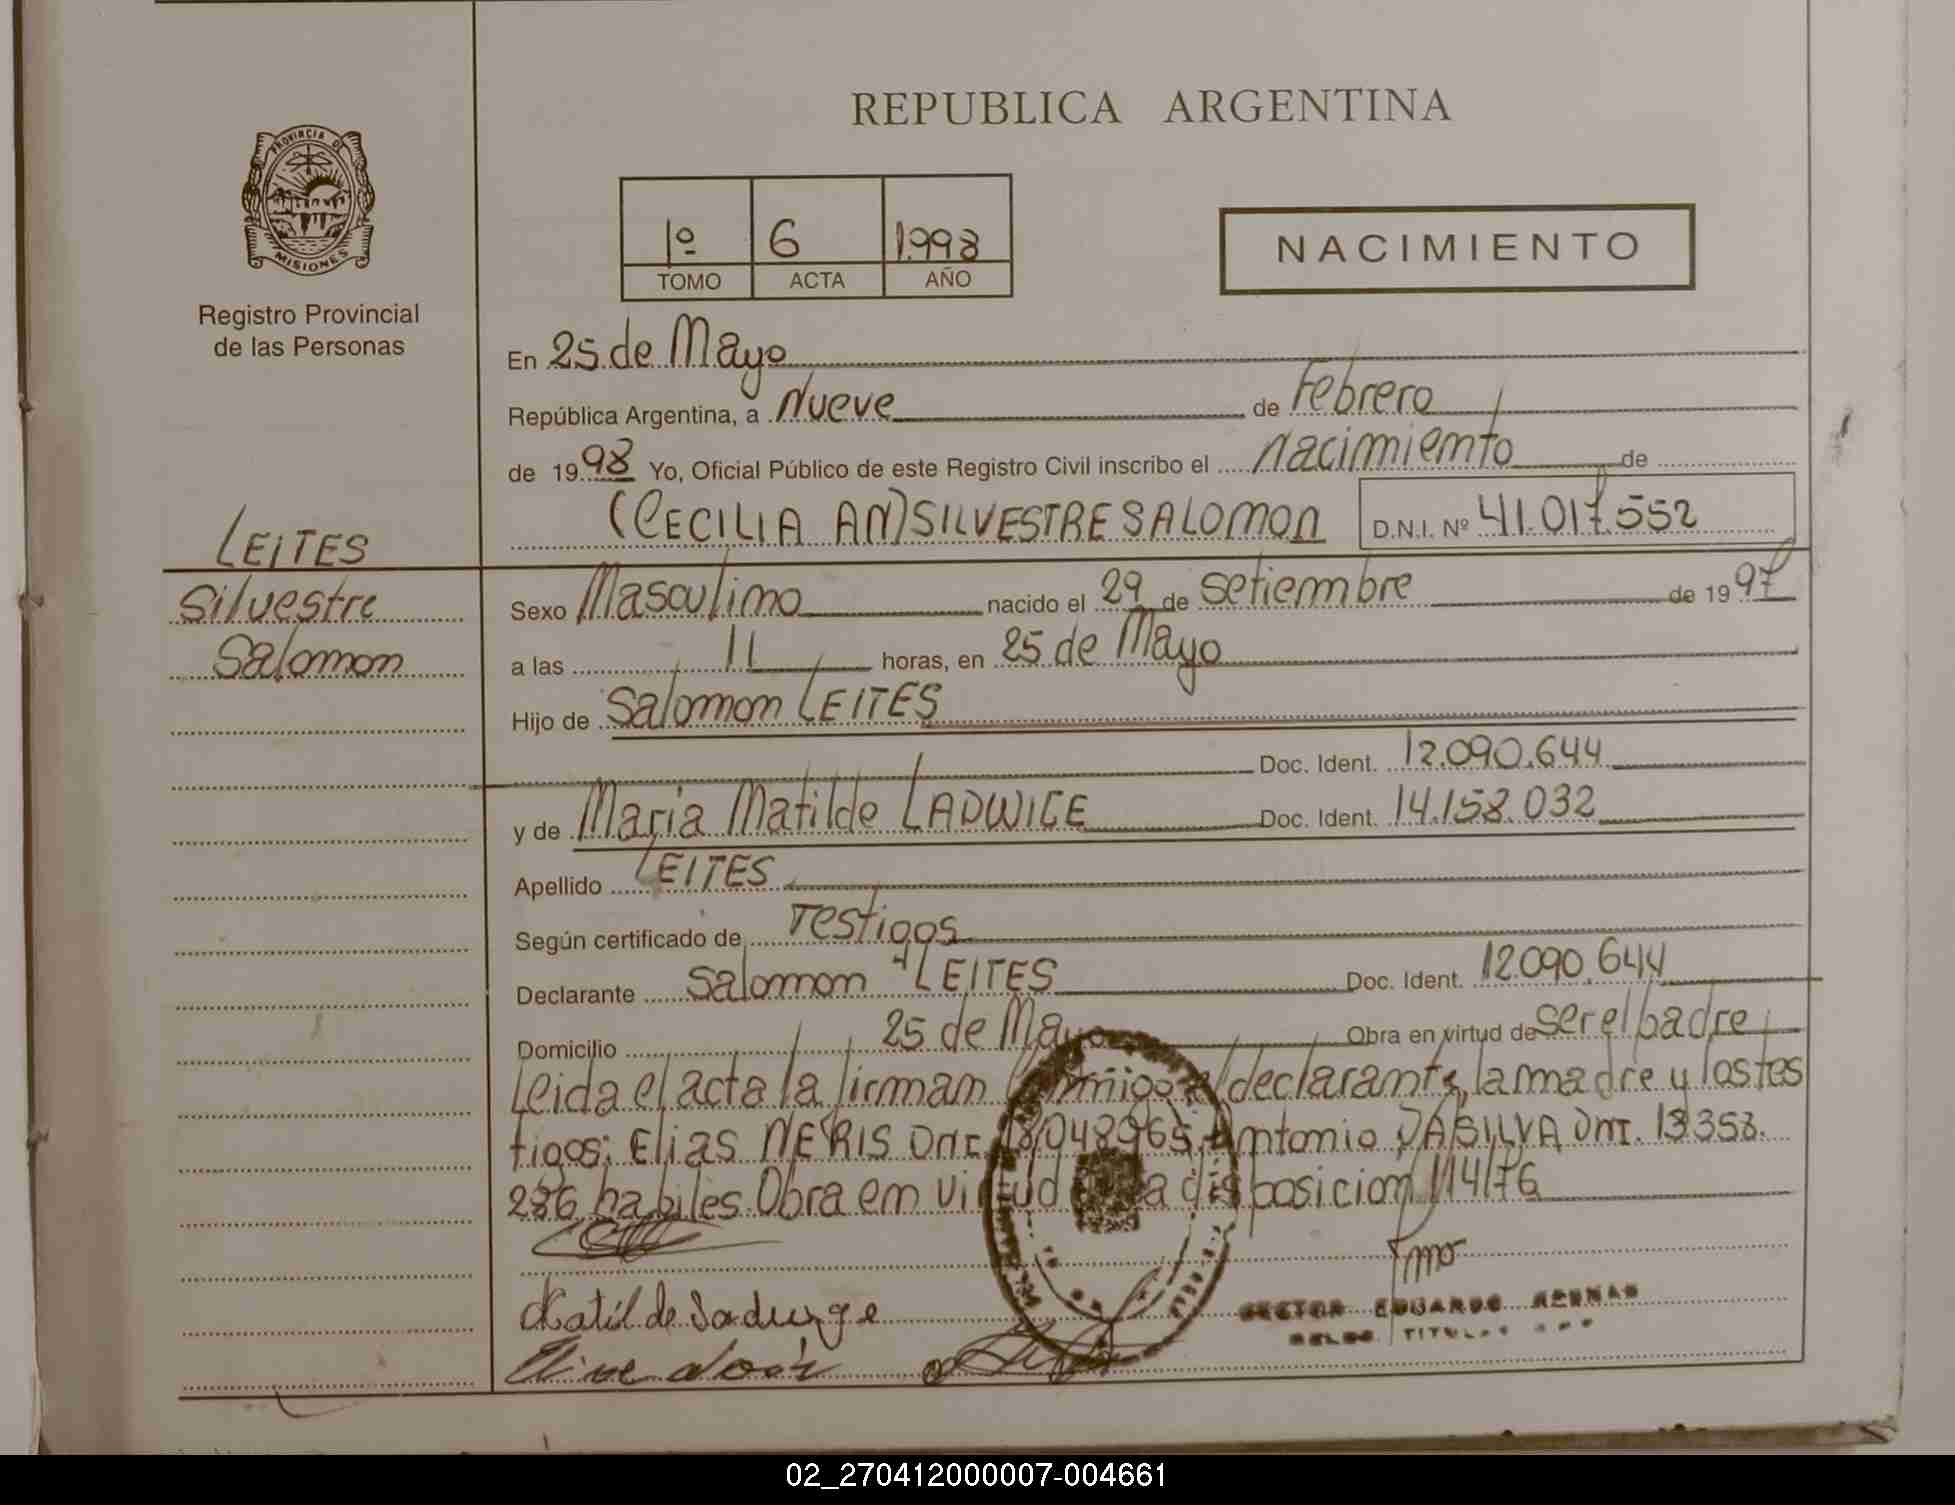 REPUBLICA ARGENTINA
PROVINCIA DE
MISIONES
Registro Provincial
de las Personas
1º 6 1.998
TOMO ACTA AÑO
NACIMIENTO
En 25 de Mayo
República Argentina, a Nueve de Febrero
de 1998 Yo, Oficial Público de este Registro Civil inscribo el nacimiento de
(CECILIA AN) SILVESTRE SALOMON D.N.I. Nº 41.017.552
LEITES
Silvestre
Salomon
Sexo Masculino nacido el 29 de setiembre de 1997
a las 11 horas, en 25 de Mayo
Hijo de Salomon LEITES
Doc. Ident. 12.090.644
y de Maria Matilde Doc. Ident. 14.158.032
Apellido LEITES
Según certificado de Testigos
Declarante Salomon LEITES Doc. Ident. 12.090.644
Domicilio 25 de Mayo Obra en virtud de ser el padre
Leida el acta la firman conmigo el declarante, la madre y los tes
tigos: Elias NERIS DNI. 18.048965, Antonio DASILVA DNI. 13.358.
286 habiles. Obra en virtud de la disposicion 114/76
EDUARDO
TITULAR
02_270412000007-004661